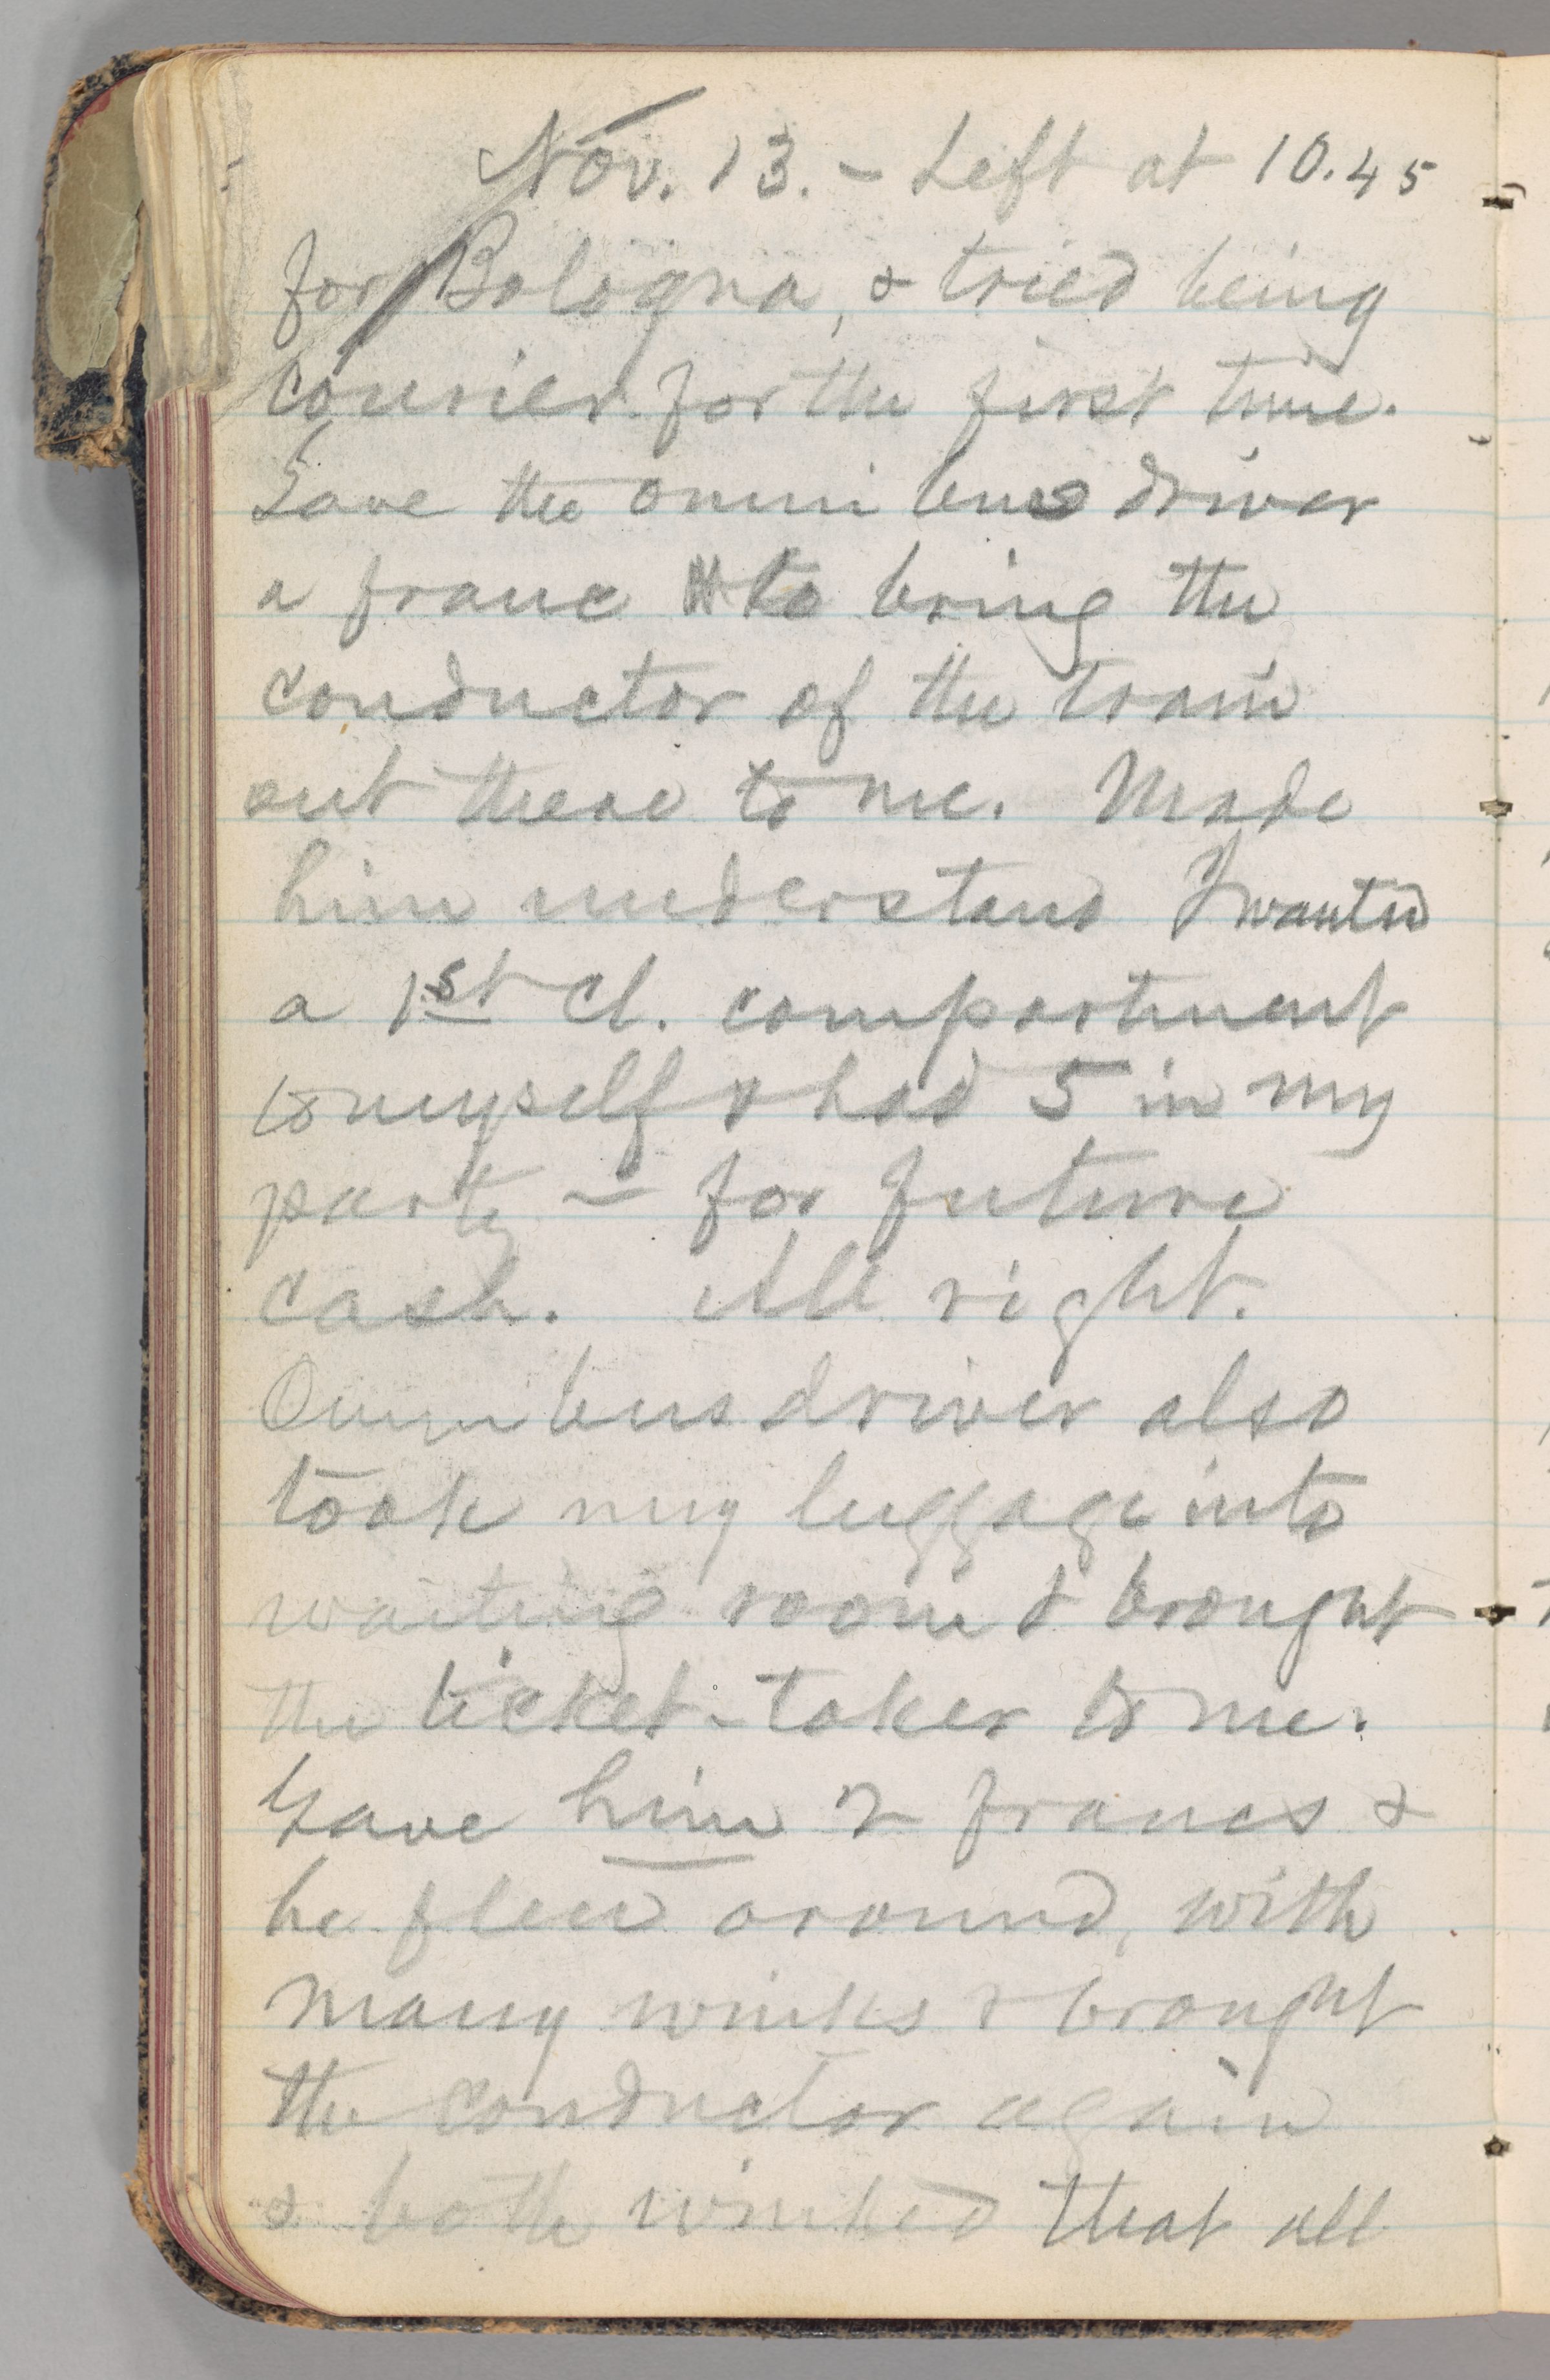 Nov. 13. – Left at 10.45
for Bologna, & tried being
courier for the first time.
Gave the omnibus driver
a franc to bring the
conductor of the train
out there to me. Made
him understand I wanted
a 1st cl. compartment
to myself & had 5 in my
party – for future
cash. All right.
Omnibus driver also
took my luggage into
waiting room & brought
the ticket-taker to me.
Gave him 2 francs &
he flew around, with
many winks & brought
the conductor again
& both winked that all